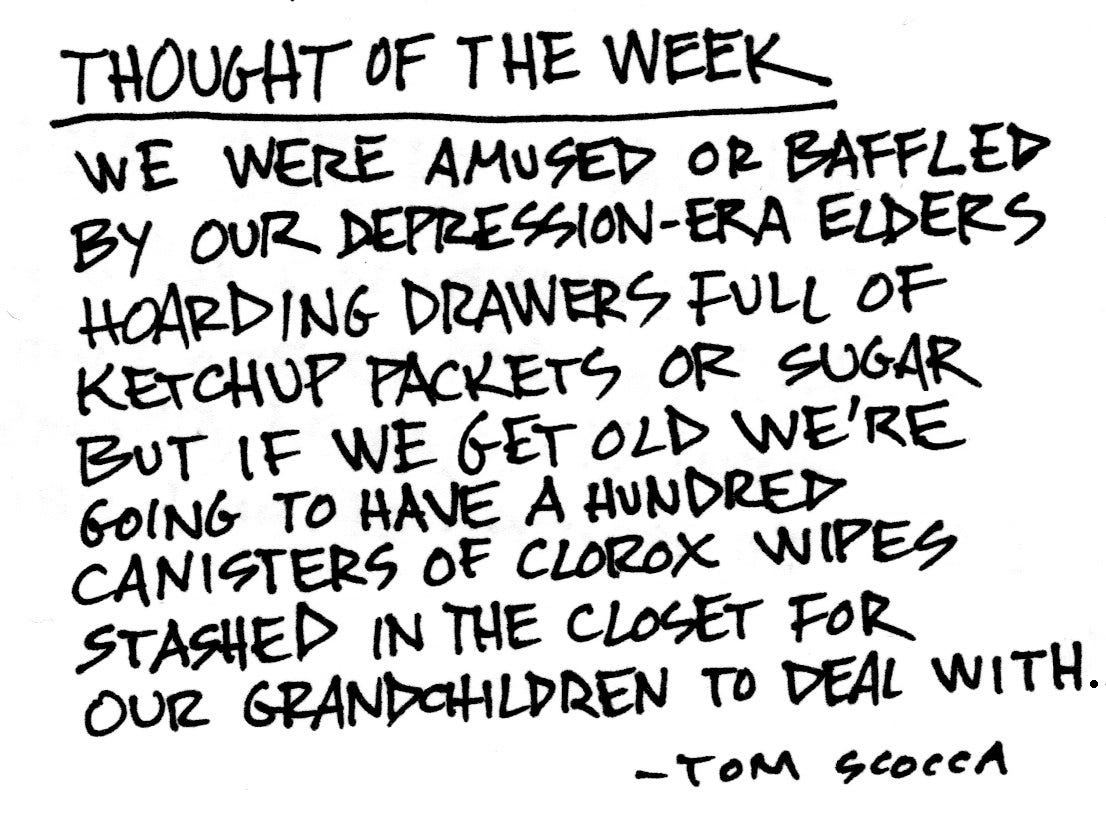 THOUGHT OF THE WEEK
WE WERE AMUSED OR BAFFLED
BY OUR DEPRESSION-ERA ELDERS
HOARDING DRAWERS FULL OF
KETCHUP PACKETS OR SUGAR
BUT IF WE GET OLD WE'RE
GOING TO HAVE A HUNDRED
CANISTERS OF CLOROX WIPES
STASHED IN THE CLOSET FOR
OUR GRANDCHILDREN TO DEAL WITH.
-TOM SCOCCA